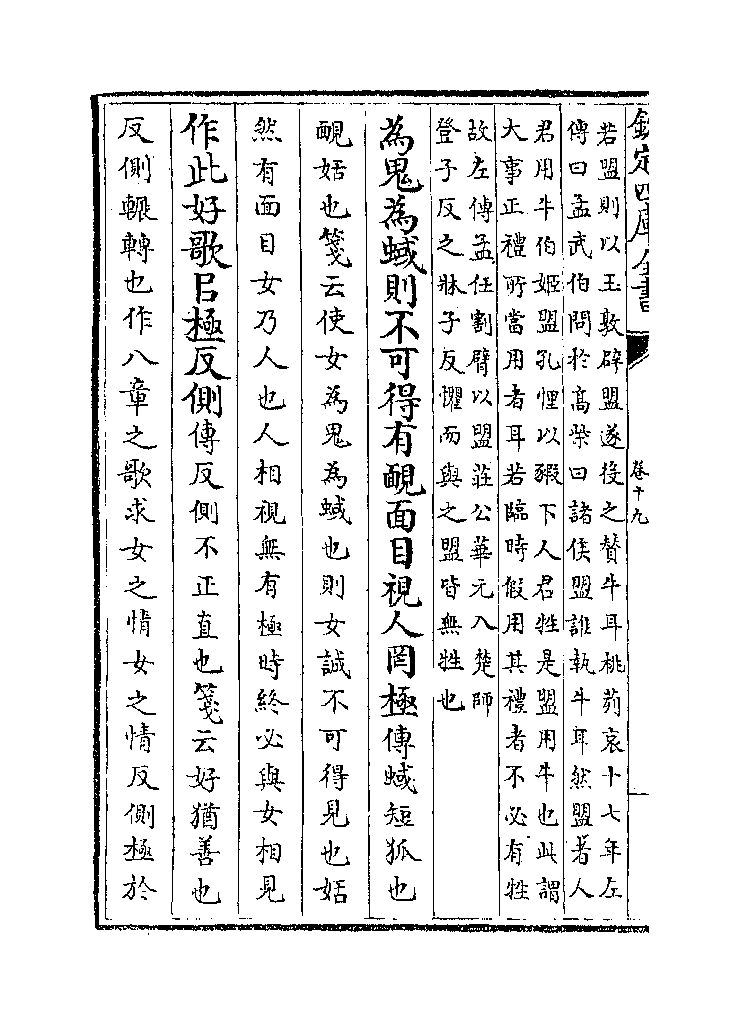 欽定四庫全書
卷十九
若盟則以玉敦辟盟遂役之贊牛耳桃茢哀十七年左
傳曰孟武伯問於高柴曰諸侯盟誰執牛耳然盟者人
君用牛伯姬盟孔悝以豭下人君牲是盟用牛也此謂
大事正禮所當用者耳若臨時假用其禮者不必有牲
故左傳孟任割臂以盟莊公華元入楚師
登子反之牀子反懼而與之盟皆無牲也
為鬼為蜮則不可得有靦面目視人罔極傳蜮短狐也
靦姡也箋云使女為鬼為蜮也則女誠不可得見也姡
然有面目女乃人也人相視無有極時終必與女相見
作此好歌㠯極反側傳反側不正直也箋云好猶善也
反側輾轉也作八章之歌求女之情女之情反側極於